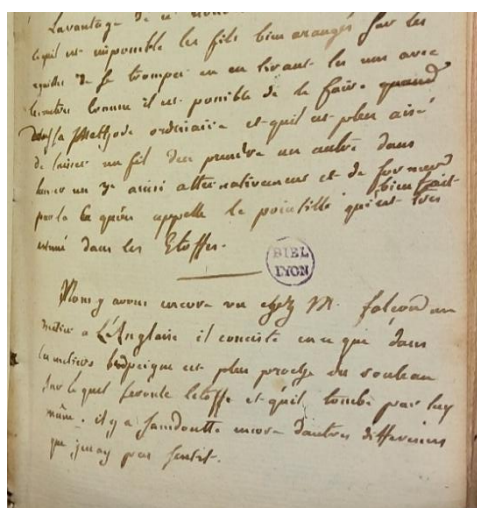 Lavantage de
quil est imposible les fils bien arangés sur les
de se tromper en en tirant les uns avec
lesautres Comme il est possible de le faire quand
dans la Methode ordinaire et quil est plus aisé
de laisser un fil den prendre un autre dans
un 3e ainsi alternativement et de former
par la ce quon appelle le pointillé qui est tres
bien fait
dans les Etoffes.
BIEL
LYON
Nous y avons encore vu chez M. falcon un
métier a L'Anglaise il conciste en ce que dans
ce métier est plus proche du rouleau
sur lequel senroule letoffe et quil tombe par luy
même. il y a sansdoutte encore dautres differences
que jenay pas sentit.